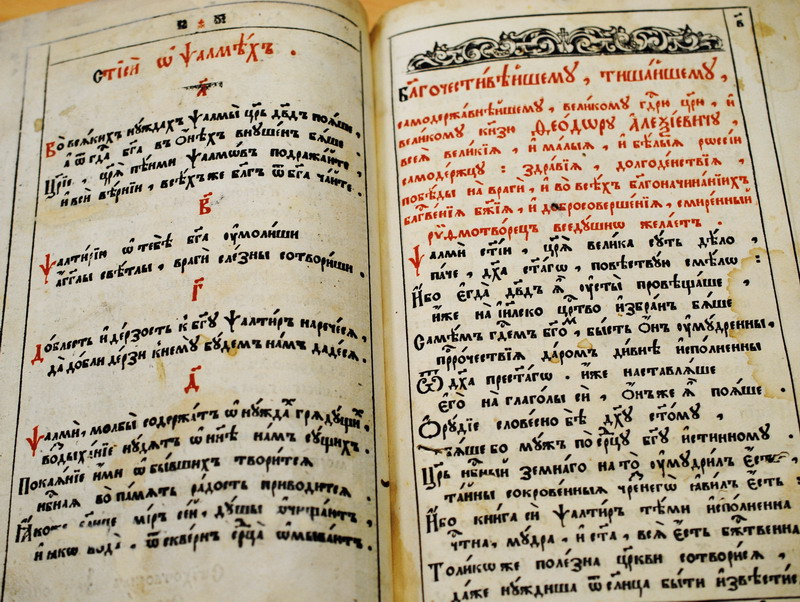 Стїсѝ ѡ҆ ѱалмѣ́хъ .
А҃
Во всѧ́кихъ нꙋ́ждахъ ѱалмы̀ цр҃ь дв҃дъ поѧ́ше ,
а҆ ѿ гдⷭ҇а бг҃а въ ѻ҆́нѣхъ внꙋше́н бѧ́ше .
Цр҃їе , цр҃ѧ̀ пѣ́ньми ѱалмѡ́въ подража́йте ,
и҆ всѝ вѣ́рнїи , всѣ́хъ же бл҃гъ ѿ бг҃а ча́йте .
В҃
Ѱалти́рїи ѡ҆ тебѣ̀ бг҃а ᲂу҆мо́лиши
а҆́гг҃лы свѣ́тлы , врагѝ сле́зны сотвори́ши .
Г҃
До́блесть и҆ де́рзость к̾ бг҃ꙋ ѱалти́ръ нарече́сѧ ,
да̀ до́бли де́рзи к̾ немꙋ̀ бꙋ́демъ на́мъ даде́сѧ .
Д҃
Ѱалмѝ , мольбы̀ содержа́тъ ѡ҆ нꙋ́ждахъ грѧдꙋ́щихъ ,
воздыха́нїе нꙋ́дѧтъ ѡ҆ нн҃ѣ на́мъ сꙋ́щихъ .
Покаѧ́нїе и҆́ми ѡ҆ бы́вшихъ твори́тсѧ
нб҃наѧ во па́мѧть ра́дость приво́дитсѧ .
Ꙗ҆́коже со́лнце мі́ръ се́й , дꙋ́шы ѡ҆чища́ютъ ,
и҆ ꙗ҆́кѡ вода̀ , ѿ скве́рнъ се́рдца ѡ҆мыва́ютъ .
Бл҃гочести́вѣйшемꙋ , тиша́йшемꙋ ,
самодержа́внѣйшемꙋ , вели́комꙋ гдⷭ҇рю цр҃ю , и҆
вели́комꙋ кнѧ́зю Ѳео́дѡрꙋ А҆леѯі́евичꙋ ,
всеѧ̀ вели́кїѧ , и҆ ма́лыѧ , и҆ бѣ́лыѧ рѡссі́и
самоде́ржцꙋ : здра́вїѧ , долгоде́нствїѧ ,
побѣ́ды на врагѝ , и҆ во всѣ́хъ благоначина́нїихъ
блгⷭ҇ве́нїѧ бж҃їѧ , и҆ добросоверше́нїѧ , смире́нный
ри́ѳмотворецъ вседꙋ́шнѡ жела́етъ .
Ѱалмѝ ст҃і́и , цр҃ѧ̀ вели́ка сꙋ́ть дѣ́ло ,
па́че , дх҃а ст҃а́гѡ , повѣ́ствꙋю смѣ́лѡ :
И҆́бо є҆гда̀ дв҃дъ ѧ҆̀ ᲂу҆сты̀ провѣща́ше ,
и҆́же на і҆и҃леско црⷭ҇тво и҆збра́нъ бѧ́ше
Самѣ́мъ гдⷭ҇емъ бг҃омъ , бы́сть ѻ҆́нъ ᲂу҆мꙋдре́нны ,
прⷪ҇ро́чествїѧ да́ромъ ди́внѣ и҆спо́лненны
Ѿ дх҃а прест҃а́гѡ . и҆́же наставлѧ́ше
є҆го̀ на глаго́лы сѝ , ѻ҆́нъ же ѧ҆̀ поѧ́ше .
Ѻ҆рꙋ́дїе слове́сно бѣ̀ дх҃ꙋ ст҃о́мꙋ ,
бѧ́ше бо мꙋ́жъ по се́рцꙋ бг҃ꙋ и҆́стинномꙋ .
Цр҃ь нб҃ный земна́го на то̀ ᲂу҆мꙋдри́лъ є҆́сть ,
та́йны сокрове́нны чрез̾ него̀ ꙗ҆ви́лъ є҆́сть :
И҆́бо кни́га сїѧ̀ ѱалти́ръ тѣ́ми и҆спо́лненна
чⷭ҇тна̀ , мꙋ́дра , и҆ ст҃а̀ , всѧ̀ є҆́сть бжⷭ҇твенна
Толи́кѡ же поле́зна цр҃кви сотвори́сѧ ,
да́же нꙋ́жднѣйша ѿ со́лнца бы́ти и҆звѣсти́сѧ